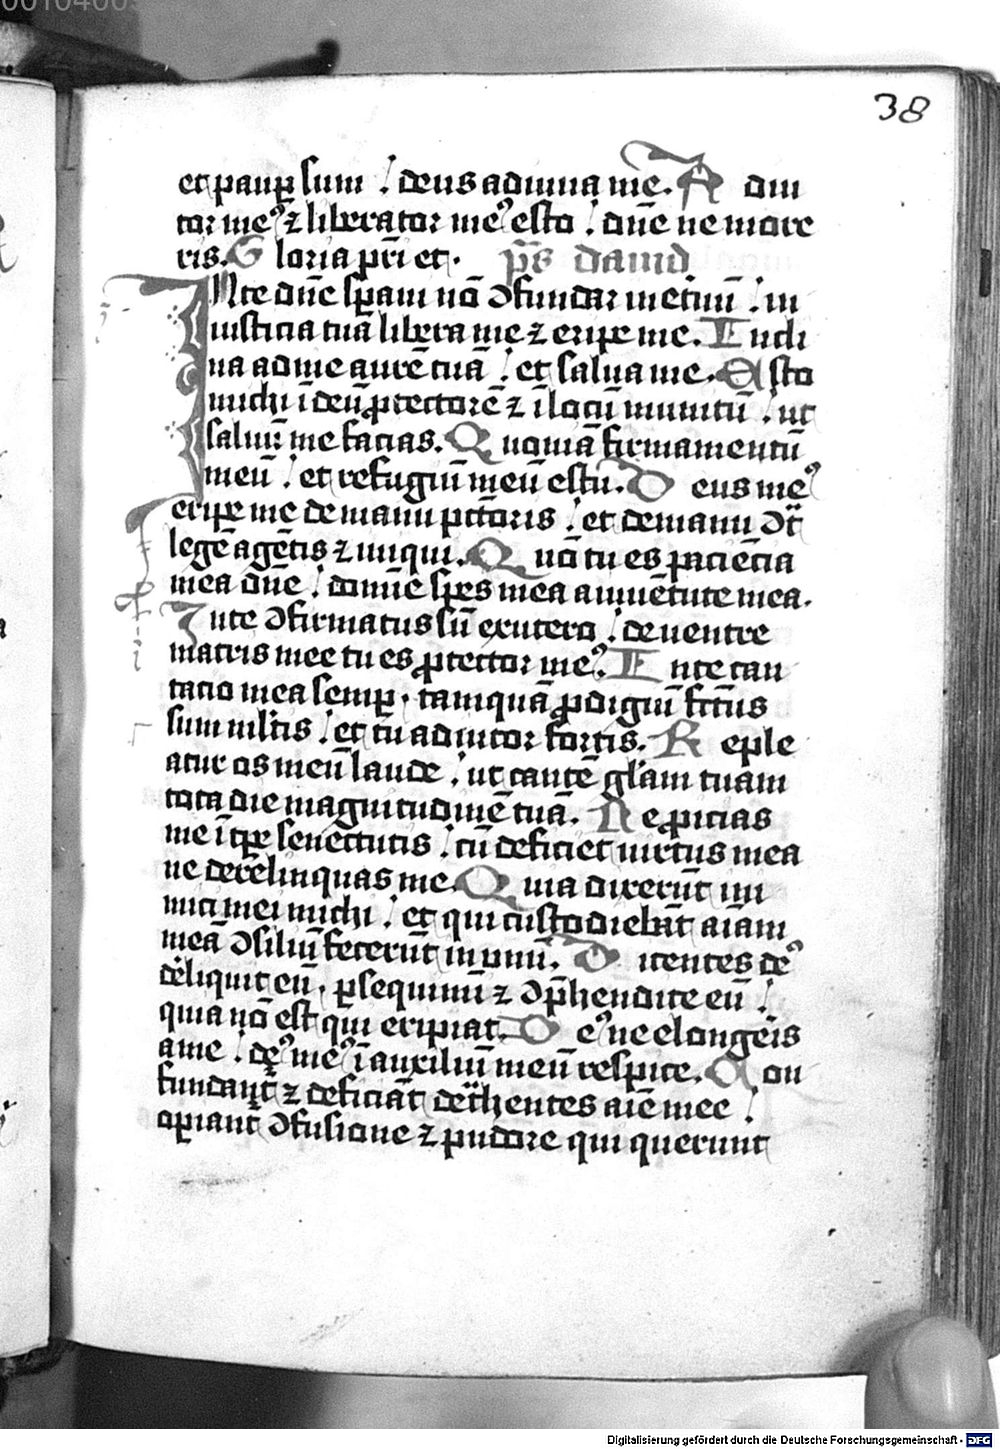 38
et paup̲ sum ! deus adiuua me. A diu
tor me⁹ ⁊ liberator me⁹ esto ! dn̄e ne more
ris. G loria pr̄i et · pſ̄s dauid
INte dn̄e sp̲aui nō ꝯfundar inet̓nū ! in
iusticia tua libera me ⁊ eripe me. I ncli
na ad me aurē tuā ! et salua me. E sto
michi ī deū ꝓtectorē ⁊ ī locū munitū ! ut
saluū me facias. Q uoniā firmamentū
meū ! et refugiū meū es tu. D eus me⁹
eripe me de manu pctōris ! et de manu ꝯt̄
legē agētis ⁊ iniqui. Q uō tu es paciēcia
mea dn̄e ! domīe spes mea a iuuētute mea.
I n te ꝯfirmatus sū ex utero ! de uentre
matris mee tu es ꝓtector me⁹. I n te can
tatio mea semp̲ · tamquā ꝓdigiū fc̄tus
sum mlt̓is ! et tu adiutor fortis. R eple
atur os meū laude ! ut cantē gl̓am tuam
tota die magnitudinē tuā. N e ꝓicias
me ī tp̲e senectutis ! cū deficiet uirtus mea
ne derelinquas me. Q uia dixerūt ini
mici mei michi ! et qui custodiebāt aīam
meā ꝯsiliū fecerūt in unū. D icentes de⁹
dēliquit eū · p̲sequimī ⁊ ꝯp̄hendite eū !
quia nō est qui eripiat. D e⁹ ne elongeis
a me ! de⁹ me⁹ ī auxiliū meū respice. C on
fundant̄ ⁊ deficiāt det̓hentes aīe mee !
op̲iant̄ ꝯfusione ⁊ pudore qui querunt
Digitalisierung gefördert durch die Deutsche Forschungsgemeinschaft - DFG